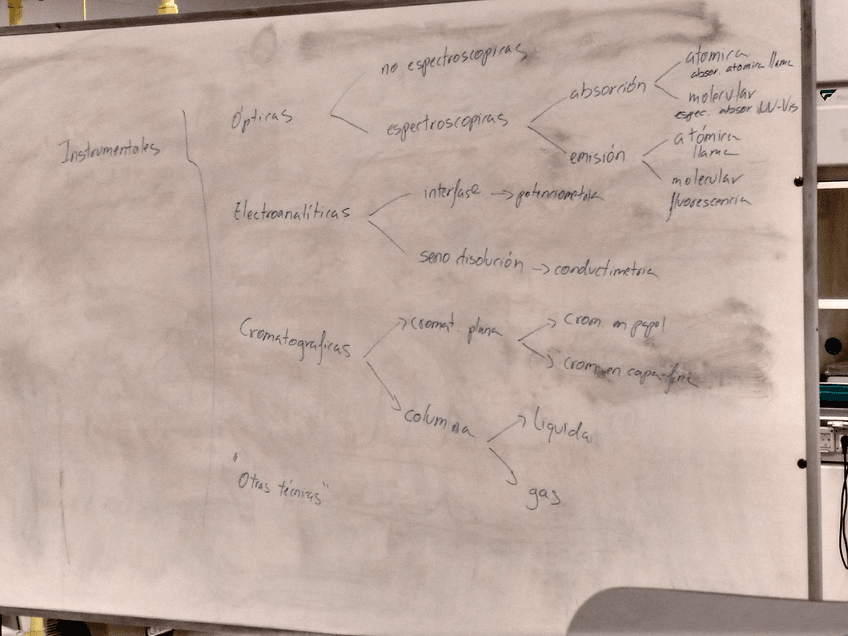 Instrumentales
Ópticas
no espectroscopicas
espectroscopicas
absorción
atomica
absor. atomica llama
molecular
espec. absor. UV-Vis
emisión
atómica
llama
molecular
fluorescencia
Electroanalíticas
interfase → potenciometria
seno disolución → conductimetria
Cromatograficas
cromat. plana
crom en papel
crom en capa fina
columna
líquida
gas
"Otras técnicas"